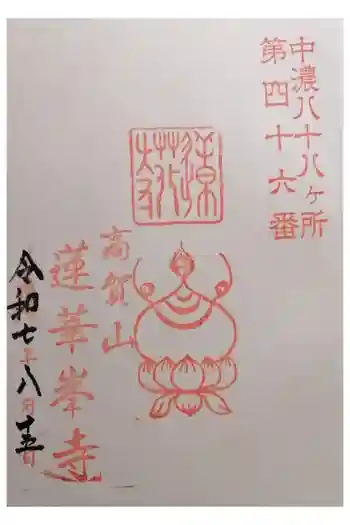 中濃八十八ヶ所
第四十六番
高賀山
蓮華峯寺
令和七年八月十五日